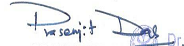 Prasenjit Das
Dr.